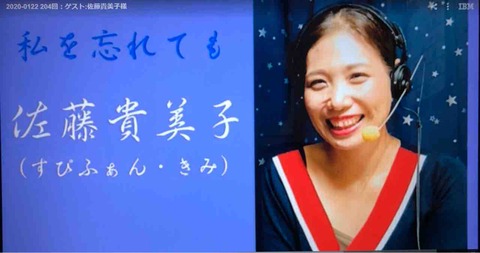 2020-0122 204回：ゲスト:佐藤貴美子様
IBM
私を忘れても
佐藤貴美子
(すぴふぁん・きみ)